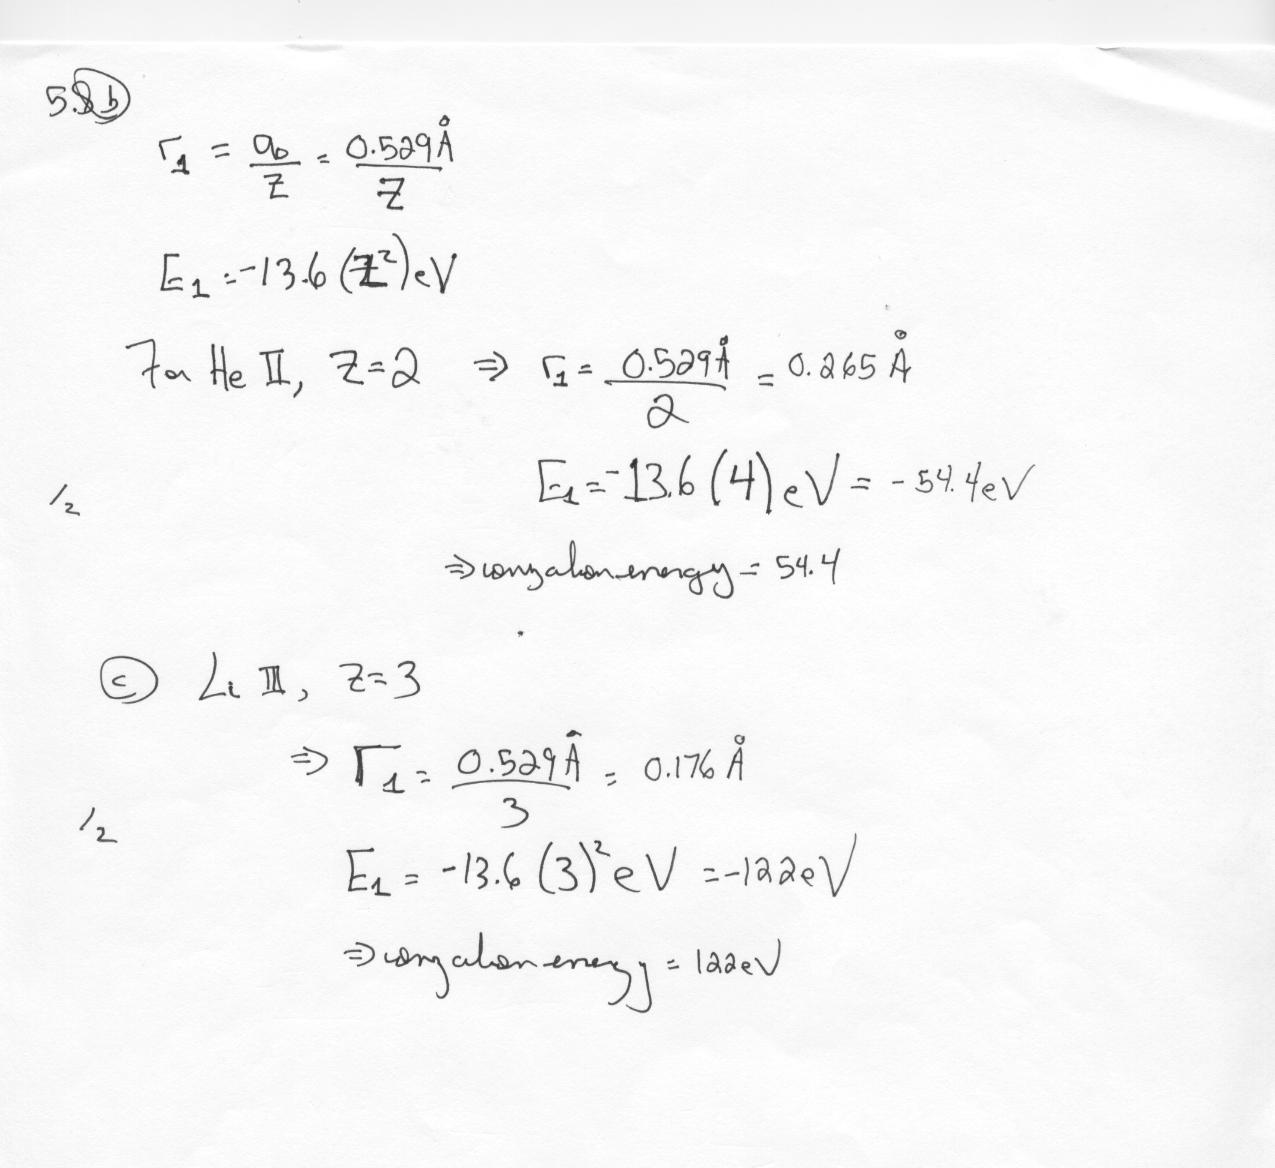 5.8 b
r₁ = a₀/Z = 0.529Å/Z
E₁ = -13.6 (Z²) eV
For He II, Z=2 ⇒ r₁ = 0.529Å/2 = 0.265 Å
E₁ = -13.6 (4) eV = -54.4 eV
/2
⇒ ionization energy = 54.4
c Li III, Z=3
⇒ r₁ = 0.529Å/3 = 0.176 Å
/2
E₁ = -13.6 (3)² eV = -122 eV
⇒ ionization energy = 122 eV